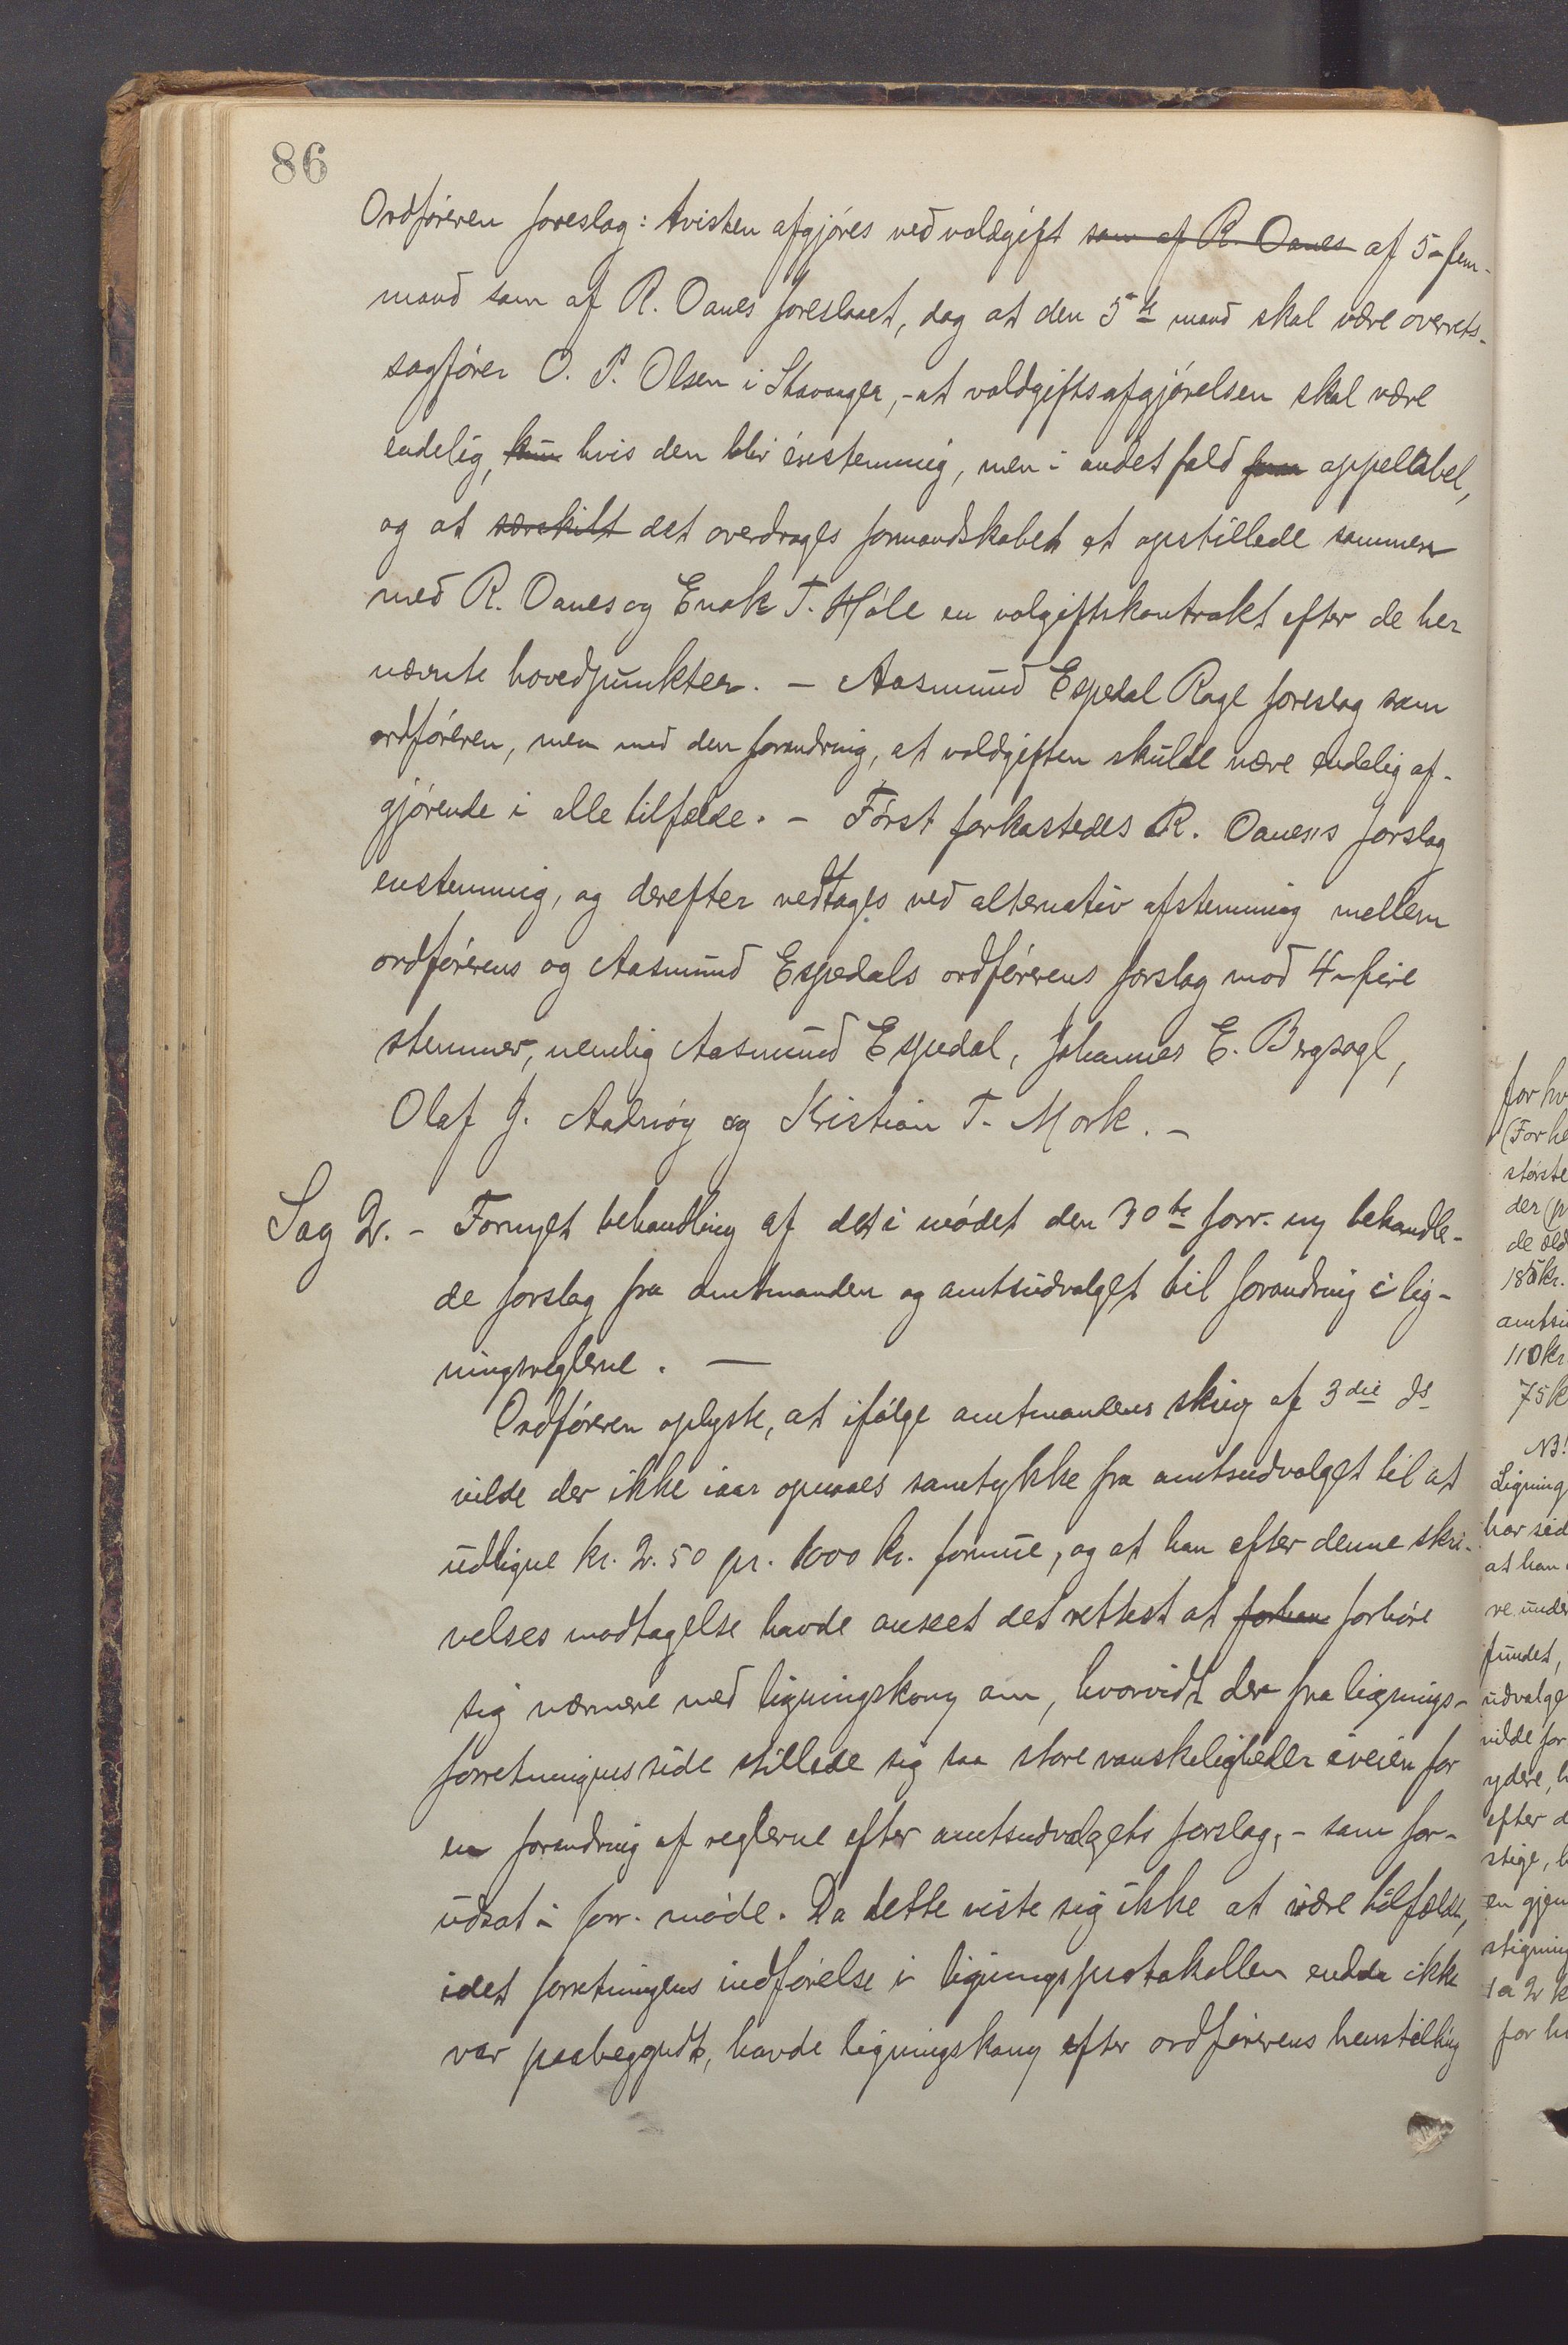 86
Ordføreren foreslog: tvisten afgjøres ved voldgift som af R. Oanes af 5-fem-
mand som af R. Oanes foreslaaet, dog at den 5te mand skal være overrets-
sagfører O. P. Olsen i Stavanger, - at voldgiftsafgjørelsen skal være
endelig, kun hvis den blir enstemmig, men i andet fald appellabel,
og at særskilt det overdrages formandskabet at opstillede sammen
med R. Oanes og Enok T. Høle en volgiftskontrakt efter de her
nævnte hovedpunkter. - Aasmund Espedal Rage foreslog som
ordføreren, men med den forandring, at voldgiften skulde være endelig af-
gjørende i alle tilfælde. - Først forkastedes R. Oanes's forslag
enstemmig, og derefter vedtoges ved alternativ afstemning mellem
ordførerens og Aasmund Espedals ordførerens forslag mod 4-fire
stemmer, nemlig Aasmund Espedal, Johannes E. Bergsagl,
Olaf J. Aadnøy og Kristian T. Mork. -
Sag 2. - Fornyet behandling af det i mødet den 30te forr. ny behandle-
de forslag fra amtmanden og amtsudvalget til forandring i lig-
ningsreglerne. -
Ordføreren oplyste, at ifølge amtmandens skriv af 3die ds
vilde der ikke iaar opnaaes samtykke fra amtsudvalget til at
udligne kr. 2.50 pr. 1000 kr. formue, og at han efter denne skri-
velses modtagelse havde anseet det rettest at forhøre
sig nærmere med ligningskomm om, hvorvidt der fra lignings-
forretningens side stillede sig saa store vanskeligheder iveien for
en forandring af reglerne efter amtsudvalgets forslag, - som for-
udsat i forr. møde. Da dette viste sig ikke at være tilfældet,
idet forretningens indførelse i ligningsprotokollen endda ikke
var paabegyndt, havde ligningskomm efter ordførerens henstilling
for hv
(For he
største
der
de æld
185 kr.
amtsu
110 kr
75 k
NB!
Ligning
har sid
at han
re under
fundet,
udvalge
vilde for
ydere, h
efter d
stige, b
en gjen
stigning
1 a 2 k
for h